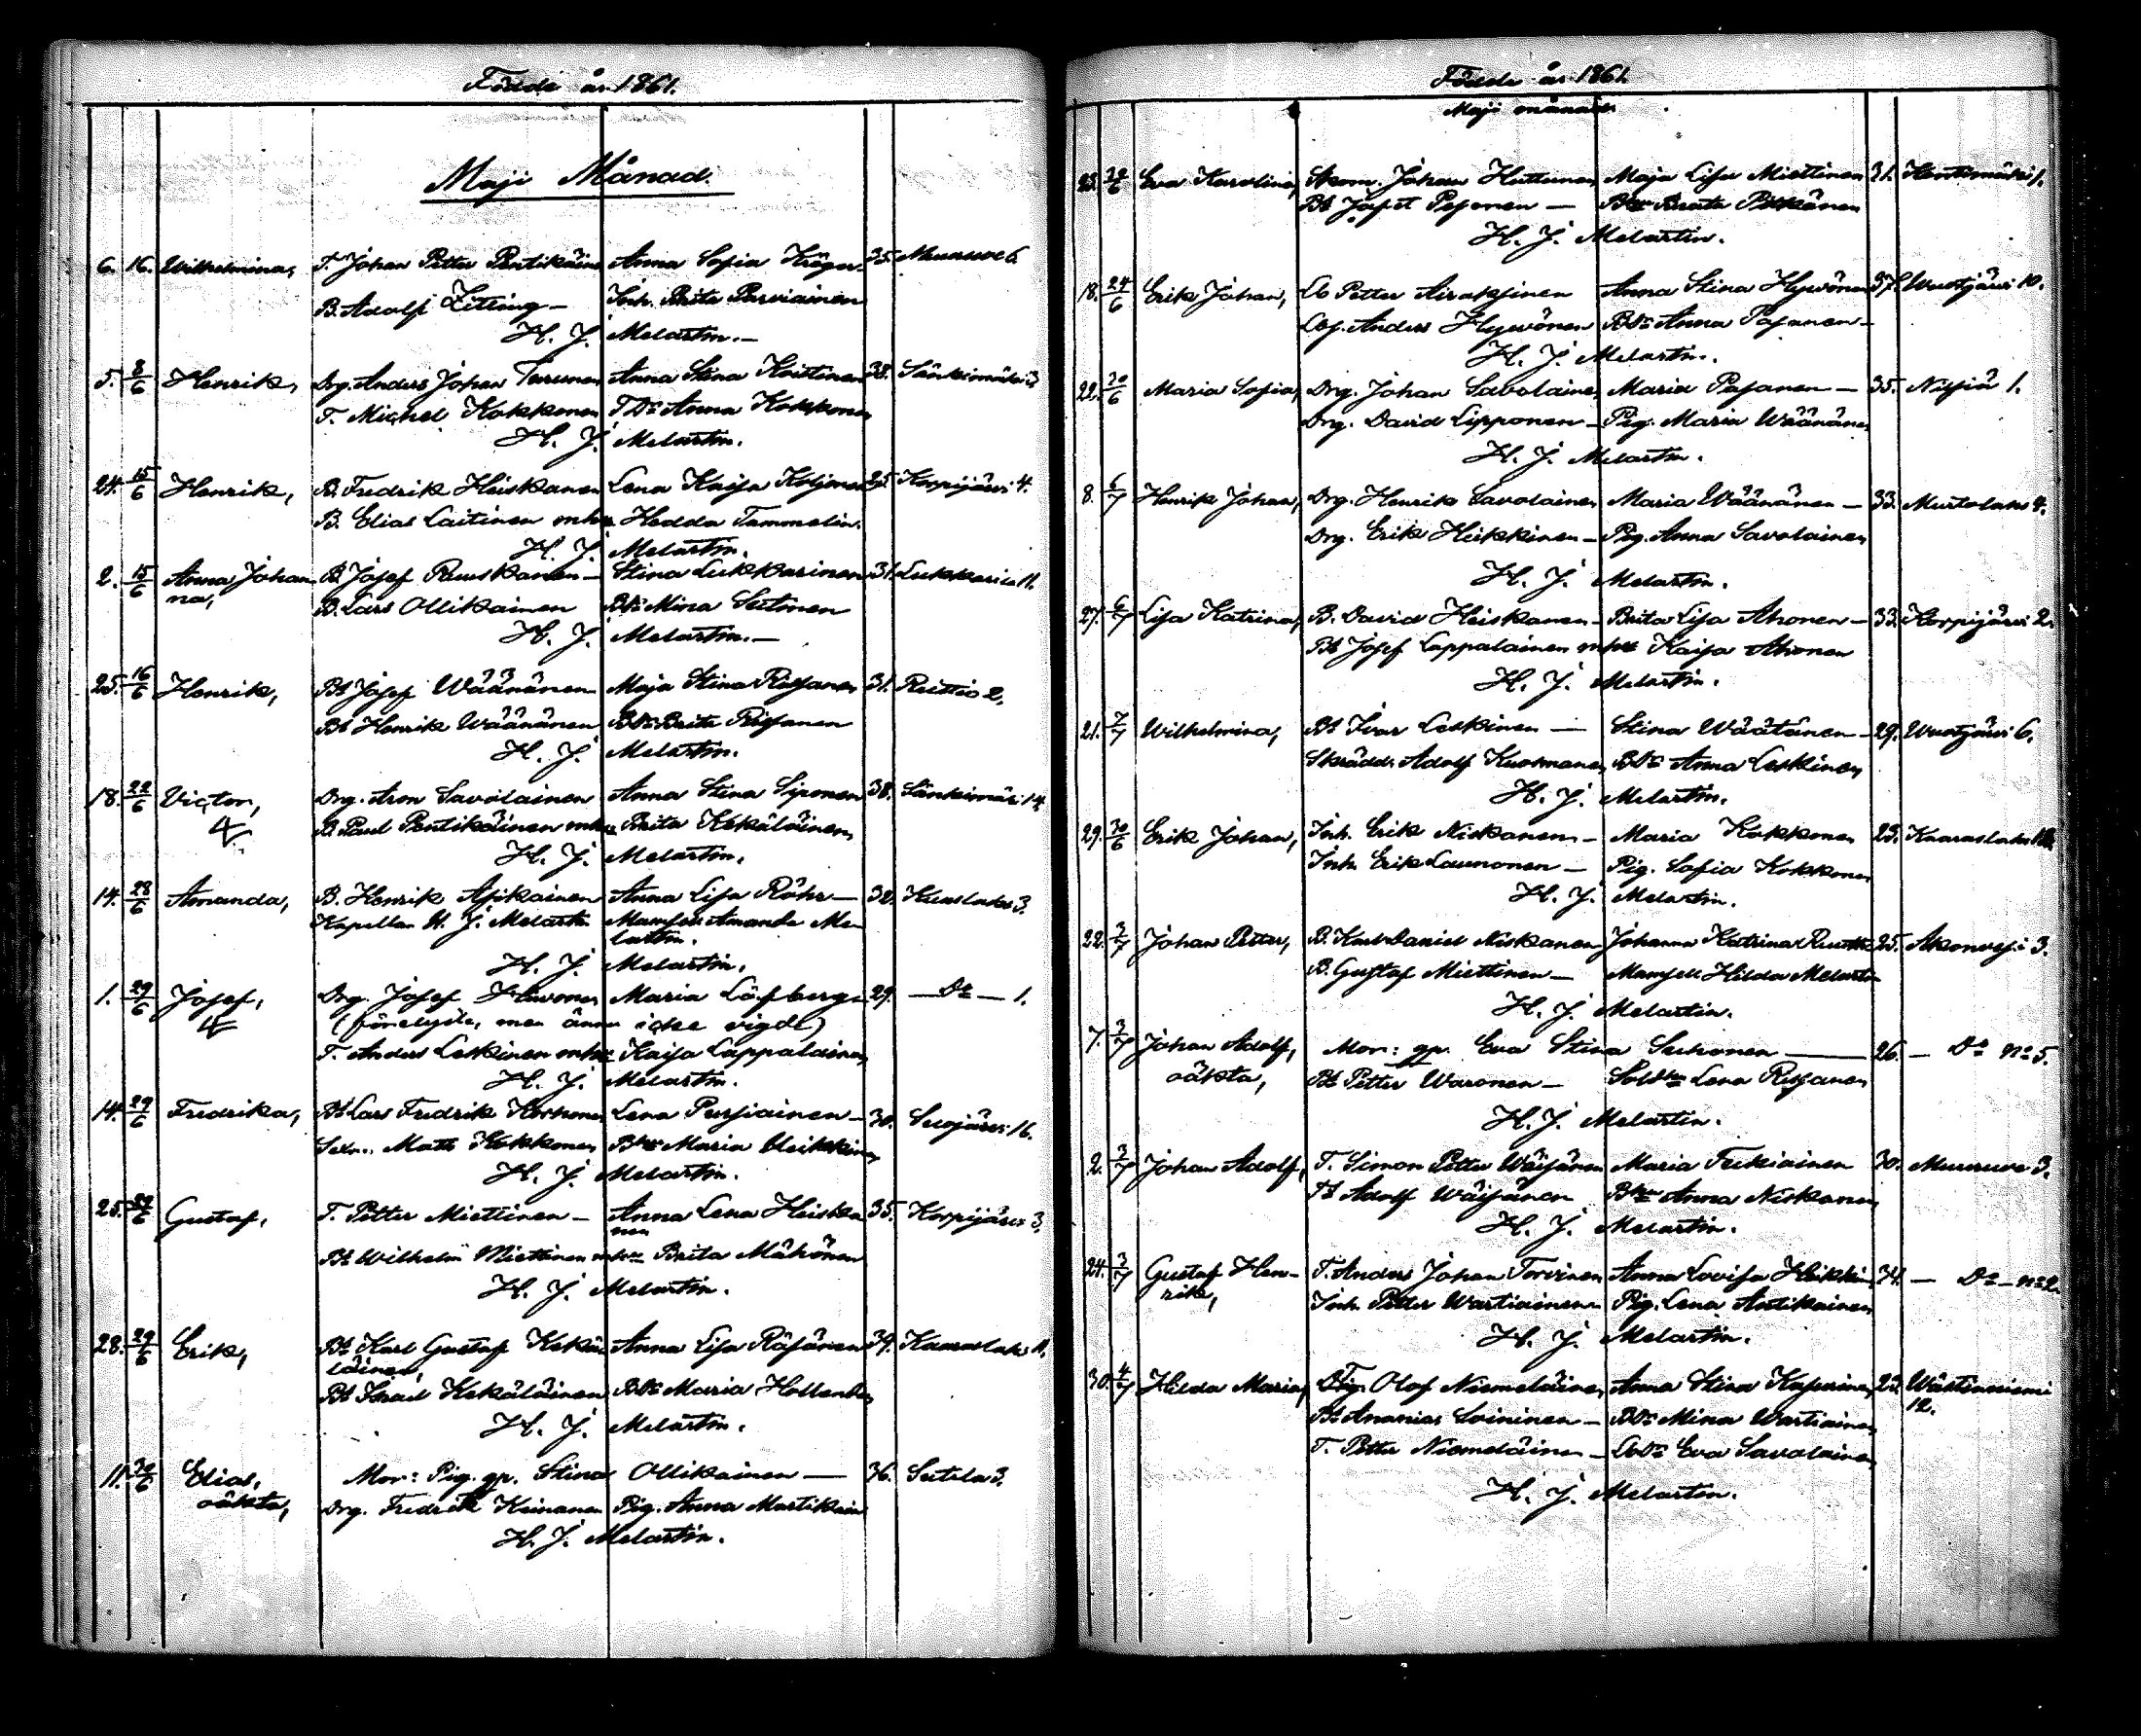 Födde år 1861.
Maji Månad.
6. 16. Wilhelmina, T. Johan Petter Pentikäine Anna Sofia Kröger 35. Muuruwe 6.
B. Adolf Zitting — Inh. Brita Parviainen
H. J. Melartin. —
5. 8/6 Henrik, Drg. Anders Johan Turunen Anna Stina Knuutinen 38. Sänkimäki 3
T. Michel Kokkonen T. Dr Anna Kokkonen
H. J. Melartin.
24. 15/6 Henrik, B. Fredrik Heiskanen Lena Kaisa Koljonen 25. Korpijärvi 4.
B. Elias Laitinen m hu Hedda Tammelin.
H. J. Melartin.
2. 15/6 Anna Johan B. Josef Ruuskanen — Stina Lukkarinen 31. Lukkarila 11.
na, B. Lars Ollikainen Bdr Mina Sutinen
H. J. Melartin. —
25. 16/6 Henrik, Bd Josef Wäänänen Maja Stina Rissanen 31. Reittiö 2.
Bd Henrik Wäänänen Bdr Brita Rissanen
H. J. Melartin.
18. 22/6 Victor, Drg. Aron Savolainen Anna Stina Siponen 38. Sänkimäki 14
B. Paul Pentikäinen m hu Brita Kekäläinen
H. J. Melartin.
14. 28/6 Amanda, B. Henrik Asikainen Anna Lisa Röhr — 32. Kuuslaks 3.
Kapellan H. J. Melartin Mamsell Amanda Me-
lartin.
H. J. Melartin.
1. 29/6 Josef, Drg. Josef Hävonen Maria Löfberg 29. — Do — 1.
(förelyste, men ännu icke vigde)
T. Anders Leskinen m hu Kaisa Lappalainen
H. J. Melartin.
14. 29/6 Fredrika, Bd Lars Fredrik Korhonen Lena Pursiainen — 30. Suojärvi 16.
Sexm. Matts Kokkonen B hu Maria Heikkinen
H. J. Melartin.
25. 29/6 Gustaf, T. Petter Miettinen — Anna Lena Heiska 35. Korpijärvi 3.
nen
Bd Wilhelm Miettinen m hu Brita Mähönen
H. J. Melartin.
28. 29/6 Erik, Bd Karl Gustaf Kekä Anna Lisa Räsänen 39. Kaaraslaks 11.
läinen,
Bd Israel Kekäläinen Bdr Maria Hollenberg
H. J. Melartin.
11. 30/6 Elias, Mor: Pig. gp. Stina Ollikainen — 36. Sutela 3.
oäkta, Drg. Fredrik Keinanen Pig. Anna Martikain
H. J. Melartin.
Födde år 1861.
Maji månad.
23. Eva Karolina, Skom. Johan Huttunen Maja Lisa Miettinen 31. Kontimäki 1.
Bd Jafet Pesonen — B hu Beata Pitkänen
H. J. Melartin.
18. 24/6 Erik Johan, Lb Petter Airaksinen Anna Stina Hyvönen 37. Wuotjärvi 10.
Lbf. Anders Hyvönen Bdr Anna Pasanen —
H. J. Melartin.
22. 30/6 Maria Sofia, Drg. Johan Savolainen Maria Pasanen — 35. Nilsiä 1.
Drg. David Lipponen — Pig. Maria Wäänänen
H. J. Melartin.
8. 6/7 Henrik Johan, Drg. Henrik Savolainen Maria Wäänänen — 33. Murtolaks 4.
Drg. Erik Heikkinen — Pig. Anna Savolainen
H. J. Melartin.
27. 6/7 Lisa Katrina, B. David Heiskanen — Brita Lisa Ahonen — 33. Korpijärvi 2.
Bd Josef Lappalainen m hu Kaisa Ahonen
H. J. Melartin.
21. 7/7 Wilhelmina, Bd Ivar Leskinen — Stina Wäätänen — 29. Wuotjärvi 6.
Skrädd. Adolf Kuosmanen Bdr Anna Leskinen
H. J. Melartin.
29. 30/6 Erik Johan, Inh. Erik Niskanen — Maria Kokkonen 23. Kaaraslaks
Inh. Erik Launonen — Pig. Sofia Kokkonen
H. J. Melartin.
22. 3/7 Johan Petter, B. Karl Daniel Niskanen Johanna Katrina 25. Akonvesi 3.
B. Gustaf Miettinen — Mamsell Hilda Melartin
H. J. Melartin.
7. 3/7 Johan Adolf, Mor: gp. Eva Stina Suhonen — 26. — Do No 5.
oäkta, Bd Petter Waronen — Sold hu Lena Rissanen
H. J. Melartin.
2. 3/7 Johan Adolf, T. Simon Petter Wäisänen Maria Tirkiainen 30. Muuruwe 3.
Td Adolf Wäisänen B hu Anna Niskanen
H. J. Melartin.
24. 3/7 Gustaf Hen- T. Anders Johan Torvinen Anna Lovisa Heikkin 34. — Do — No 2.
rik, Inh. Petter Wartiainen Pig. Lena Antikainen
H. J. Melartin.
30. 4/7 Hilda Maria, Olof Niemeläinen Anna Stina Kapurinen 22. Wästinniemi
12.
Bd Ananias Soininen — Bdr Mina Wartiainen
T. Petter Niemeläinen — Lbdr Eva Savolainen
H. J. Melartin.